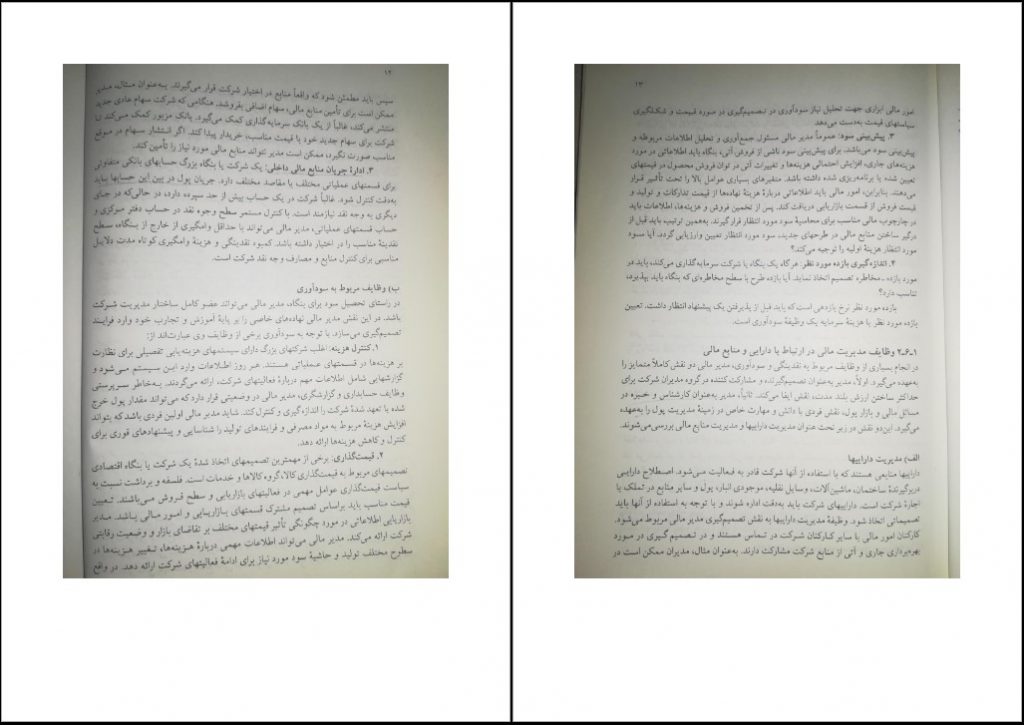 ۱۲
سپس باید مطمئن شود که واقعاً منابع در اختیار شرکت قرار می‌گیرند. به‌عنوان مثال، مدیر
ممکن است برای تأمین منابع مالی، سهام اضافی بفروشد. هنگامی که شرکت سهام عادی جدید
منتشر می‌کند، غالباً از یک بانک سرمایه‌گذاری کمک می‌گیرد. بانک مزبور کمک می‌کند تا
شرکت برای سهام جدید خود با قیمت مناسب، خریدار پیدا کند. اگر انتشار سهام در موقع
مناسب صورت نگیرد، ممکن است مدیر نتواند منابع مالی مورد نیاز را تأمین کند.
۳. ادارهٔ جریان منابع مالی داخلی: یک شرکت یا بنگاه بزرگ حسابهای بانکی متفاوتی
برای قسمتهای عملیاتی مختلف یا مقاصد مختلف دارد. جریان پول در بین این حسابها باید
به‌دقت کنترل شود. غالباً شرکت در یک حساب بیش از حد سپرده دارد، در حالی‌که در جای
دیگری به وجه نقد نیازمند است. با کنترل مستمر سطح وجوه نقد در حساب دفتر مرکزی و
حساب قسمتهای عملیاتی، مدیر مالی می‌تواند با حداقل وامگیری از خارج از بنگاه، سطح
نقدینهٔ مناسب را در اختیار داشته باشد. کمبود نقدینگی و هزینهٔ وامگیری کوتاه مدت دلایل
مناسبی برای کنترل منابع و مصارف وجه نقد شرکت است.
ب) وظایف مربوط به سودآوری
در راستای تحصیل سود برای بنگاه، مدیر مالی می‌تواند عضو کامل ساختار مدیریت شرکت
باشد. در این نقش مدیر مالی نهاده‌های خاصی را بر پایهٔ آموزش و تجارب خود وارد فرایند
تصمیم‌گیری می‌سازد. با توجه به سودآوری برخی از وظایف وی عبارت‌اند از:
۱. کنترل هزینه: اغلب شرکتهای بزرگ دارای سیستمهای هزینه‌یابی تفصیلی برای نظارت
بر هزینه‌ها در قسمتهای عملیاتی هستند. هر روز اطلاعات وارد این سیستم می‌شود و
گزارشهایی شامل اطلاعات مهم دربارهٔ فعالیتهای شرکت، ارائه می‌گردند. به‌خاطر سرپرستی
وظایف حسابداری و گزارشگری، مدیر مالی در وضعیتی قرار دارد که می‌تواند مقدار پول خرج
شده یا تعهد شدهٔ شرکت را اندازه‌گیری و کنترل کند. شاید مدیر مالی اولین فردی باشد که بتواند
افزایش هزینهٔ مربوط به مواد مصرفی و فرایندهای تولید را شناسایی و پیشنهادهای فوری برای
کنترل و کاهش هزینه‌ها ارائه دهد.
۲. قیمت‌گذاری: برخی از مهمترین تصمیمهای اتخاذ شدهٔ یک شرکت یا بنگاه اقتصادی
تصمیمهای مربوط به قیمت‌گذاری کالا، گروه کالاها و خدمات است. فلسفه و برداشت نسبت به
سیاست قیمت‌گذاری عوامل مهمی در فعالیتهای بازاریابی و سطح فروش می‌باشند. تعیین
قیمت مناسب باید براساس تصمیم مشترک قسمتهای بازاریابی و امور مالی باشد. مدیر
بازاریابی اطلاعاتی در مورد چگونگی تأثیر قیمتهای مختلف بر تقاضای بازار و وضعیت رقابتی
شرکت ارائه می‌کند. مدیر مالی می‌تواند اطلاعات مهمی دربارهٔ هزینه‌ها، تغییر هزینه‌ها در
سطوح مختلف تولید و حاشیهٔ سود مورد نیاز برای ادامهٔ فعالیتهای شرکت ارائه دهد. در واقع
۱۳
امور مالی ابزاری جهت تحلیل نیاز سودآوری در تصمیم‌گیری در مورد قیمت و شکلگیری
سیاستهای قیمت به‌دست می‌دهد.
۳. پیش‌بینی سود: عموماً مدیر مالی مسئول جمع‌آوری و تحلیل اطلاعات مربوطه و
پیش‌بینی سود می‌باشد. برای پیش‌بینی سود ناشی از فروش آتی، بنگاه باید اطلاعاتی در مورد
هزینه‌های جاری، افزایش احتمالی هزینه‌ها و تغییرات آتی در توان فروش محصول در قیمتهای
تعیین شده یا برنامه‌ریزی شده داشته باشد. متغیرهای بسیاری عوامل بالا را تحت تأثیر قرار
می‌دهند. بنابراین، امور مالی باید اطلاعاتی دربارهٔ هزینهٔ نهاده‌ها از قسمت تدارکات و تولید و
قیمت فروش از قسمت بازاریابی دریافت کند. پس از تخمین فروش و هزینه‌ها، اطلاعات باید
در چارچوب مالی مناسب برای محاسبهٔ سود مورد انتظار قرارگیرند. به‌همین ترتیب باید قبل از
درگیر ساختن منابع مالی در طرحهای جدید، سود مورد انتظار تعیین و ارزیابی گردد. آیا سود
مورد انتظار هزینهٔ اولیه را توجیه می‌کند؟
۴. اندازه‌گیری بازده مورد نظر: هرگاه یک بنگاه یا شرکت سرمایه‌گذاری می‌کند، باید در
مورد بازده ـ مخاطره تصمیم اتخاذ نماید. آیا بازده طرح با سطح مخاطره‌ای که بنگاه باید بپذیرد،
تناسب دارد؟
بازده مورد نظر نرخ بازدهی است که باید قبل از پذیرفتن یک پیشنهاد انتظار داشت. تعیین
بازده مورد نظر یا هزینهٔ سرمایه یک وظیفهٔ سودآوری است.
۱ـ۶ـ۲ وظایف مدیریت مالی در ارتباط با دارایی و منابع مالی
در انجام بسیاری از وظایف مربوط به نقدینگی و سودآوری، مدیر مالی دو نقش کاملاً متمایز را
به‌عهده می‌گیرد. اولاً، مدیر به‌عنوان تصمیم‌گیرنده و مشارکت کننده در گروه مدیران شرکت برای
حداکثر ساختن ارزش بلند مدت، نقش ایفا می‌کند. ثانیاً، مدیر به‌عنوان کارشناس و خبره در
مسائل مالی و بازار پول، نقش فردی با دانش و مهارت خاص در زمینهٔ مدیریت پول را به‌عهده
می‌گیرد. این‌دو نقش در زیر تحت عنوان مدیریت داراییها و مدیریت منابع مالی بررسی‌می‌شوند.
الف) مدیریت داراییها
داراییها منابعی هستند که با استفاده از آنها شرکت قادر به فعالیت می‌شود. اصطلاح دارایی
دربرگیرندهٔ ساختمان، ماشین‌آلات، وسایل نقلیه، موجودی انبار، پول و سایر منابع در تملک یا
اجارهٔ شرکت است. داراییهای شرکت باید به‌دقت اداره شوند و با توجه به استفاده از آنها باید
تصمیماتی اتخاذ شود. وظیفهٔ مدیریت داراییها به نقش تصمیم‌گیری مدیر مالی مربوط می‌شود.
کارکنان امور مالی با سایر کارکنان شرکت در تماس هستند و در تصمیم گیری در مورد
بهره‌برداری جاری و آتی از منابع شرکت مشارکت دارند. به‌عنوان مثال، مدیران ممکن است در